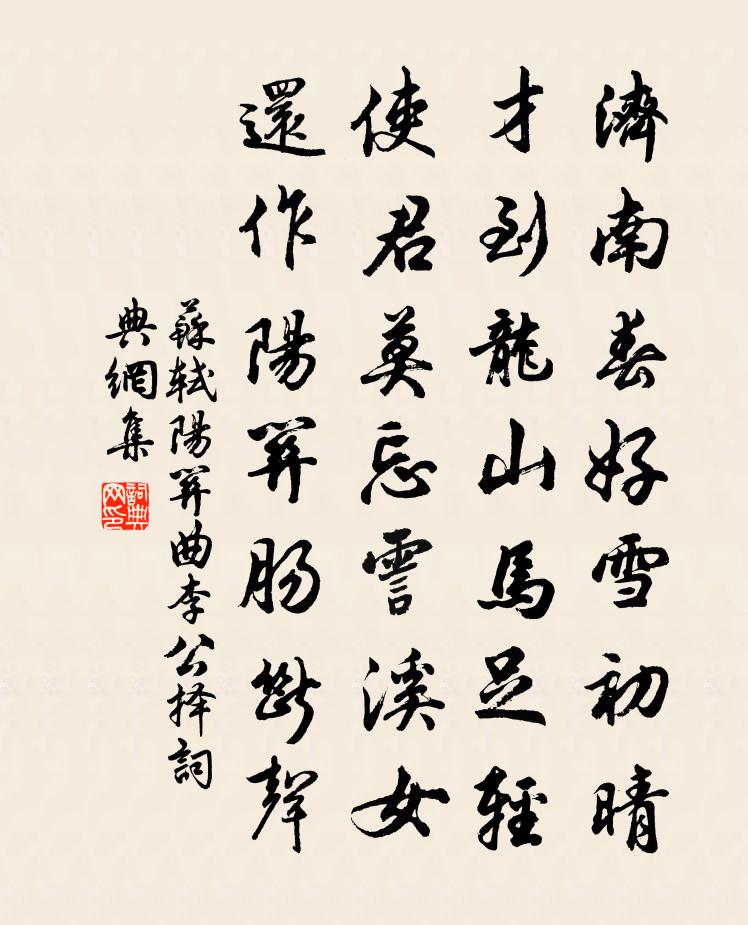 濟南春好雪初晴
才到龍山馬足輕
使君莫忘霅溪女
還作陽關腸斷聲
蘇軾陽關曲李公择詞
典網集
詞典网印